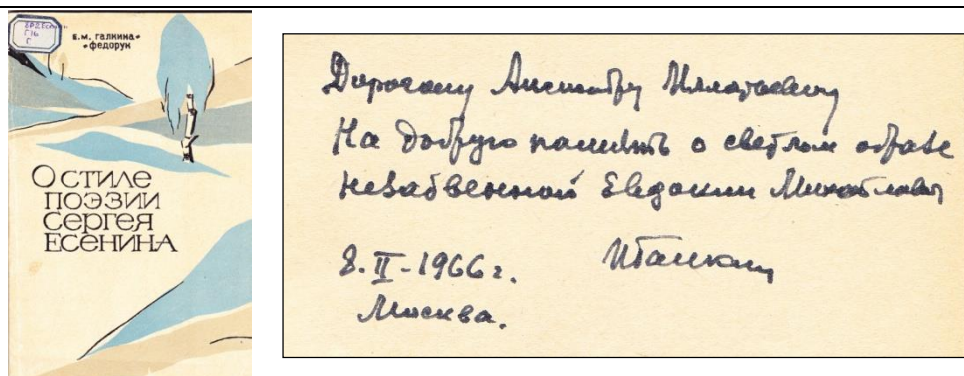 Е.М. ГАЛКИНА-
ФЕДОРУК
О СТИЛЕ
ПОЭЗИИ
СЕРГЕЯ
ЕСЕНИНА
Дорогому
На добрую память о светлом образе
незабвенной Евдокии Михайловны
8.II-1966 г.
Москва.